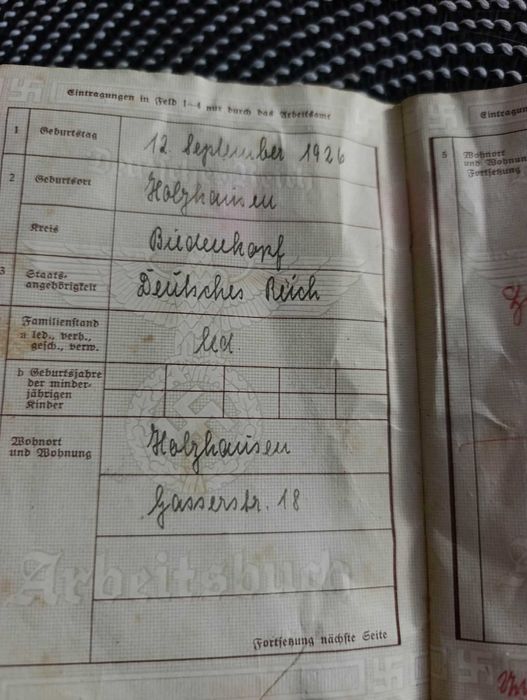 Eintragungen in Feld 1–4 nur durch das Arbeitsamt
1 Geburtstag 12. September 1926
2 Geburtsort Holzhausen
Kreis Biedenkopf
3 Staats-
angehörigkeit Deutsches Reich
Familienstand
a led., verh.,
gesch., verw. led
b Geburtsjahre
der minder-
jährigen
Kinder
Wohnort
und Wohnung Holzhausen
Gasserstr. 18
Arbeitsbuch
Fortsetzung nächste Seite
Eintragung
5 Wohnort
und Wohnung
Fortsetzung